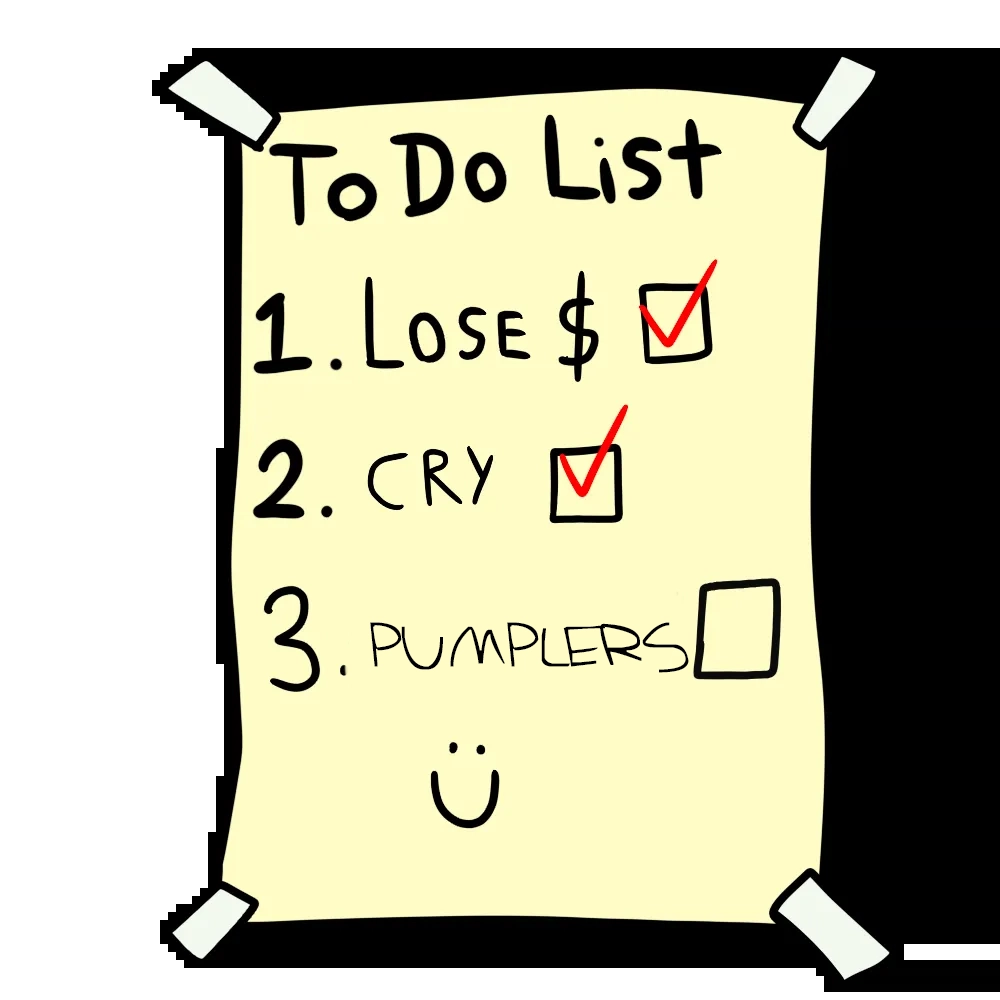 To Do List
1. LOSE $
2. CRY
3. PUMPLERS